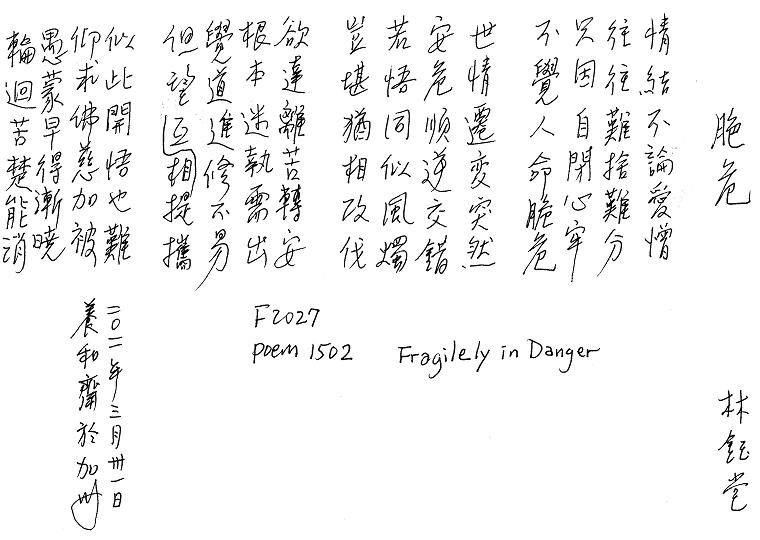 脆危
林鈺堂
情結不論愛憎
往往難捨難分
只因自閉心牢
不覺人命脆危
世情遷變突然
安危順逆交錯
若悟同似風燭
豈堪猶相攻伐
欲達離苦轉安
根本迷執需出
覺道進修不易
但望互相提攜
似此開悟也難
仰求佛慈加被
愚蒙早得漸曉
輪迴苦楚能消
二〇一一年三月卅一日
養和齋於加州
F2027
poem 1502
Fragilely in Danger